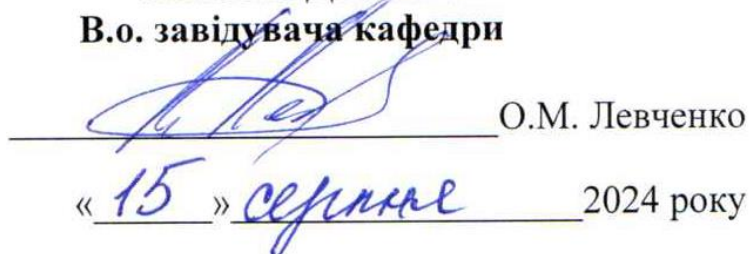 В.о. завідувача кафедри
О.М. Левченко
«15» серпня 2024 року